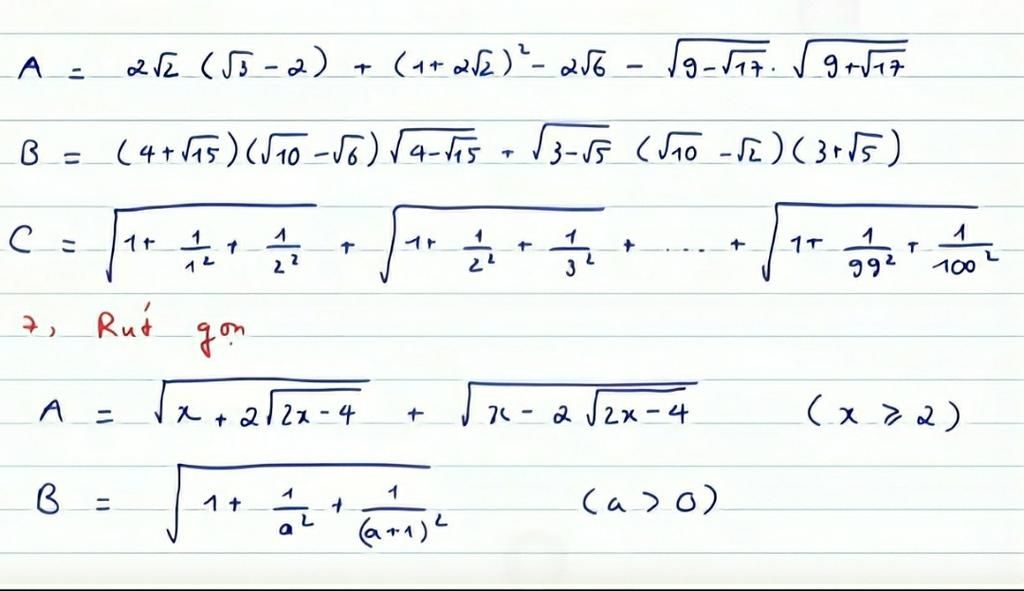 A = 2√2 (√3 - 2) + (1 + 2√2)² - 2√6 - √(9 - √17) · √(9 + √17)
B = (4 + √15)(√10 - √6) √(4 - √15) + √(3 - √5) (√10 - √2)(3 + √5)
C = √(1 + 1/1² + 1/2²) + √(1 + 1/2² + 1/3²) + .... + √(1 + 1/99² + 1/100²)
7, Rút gọn
A = √(x + 2√(2x - 4)) + √(x - 2√(2x - 4)) (x ⩾ 2)
B = √(1 + 1/a² + 1/(a+1)²) (a > 0)